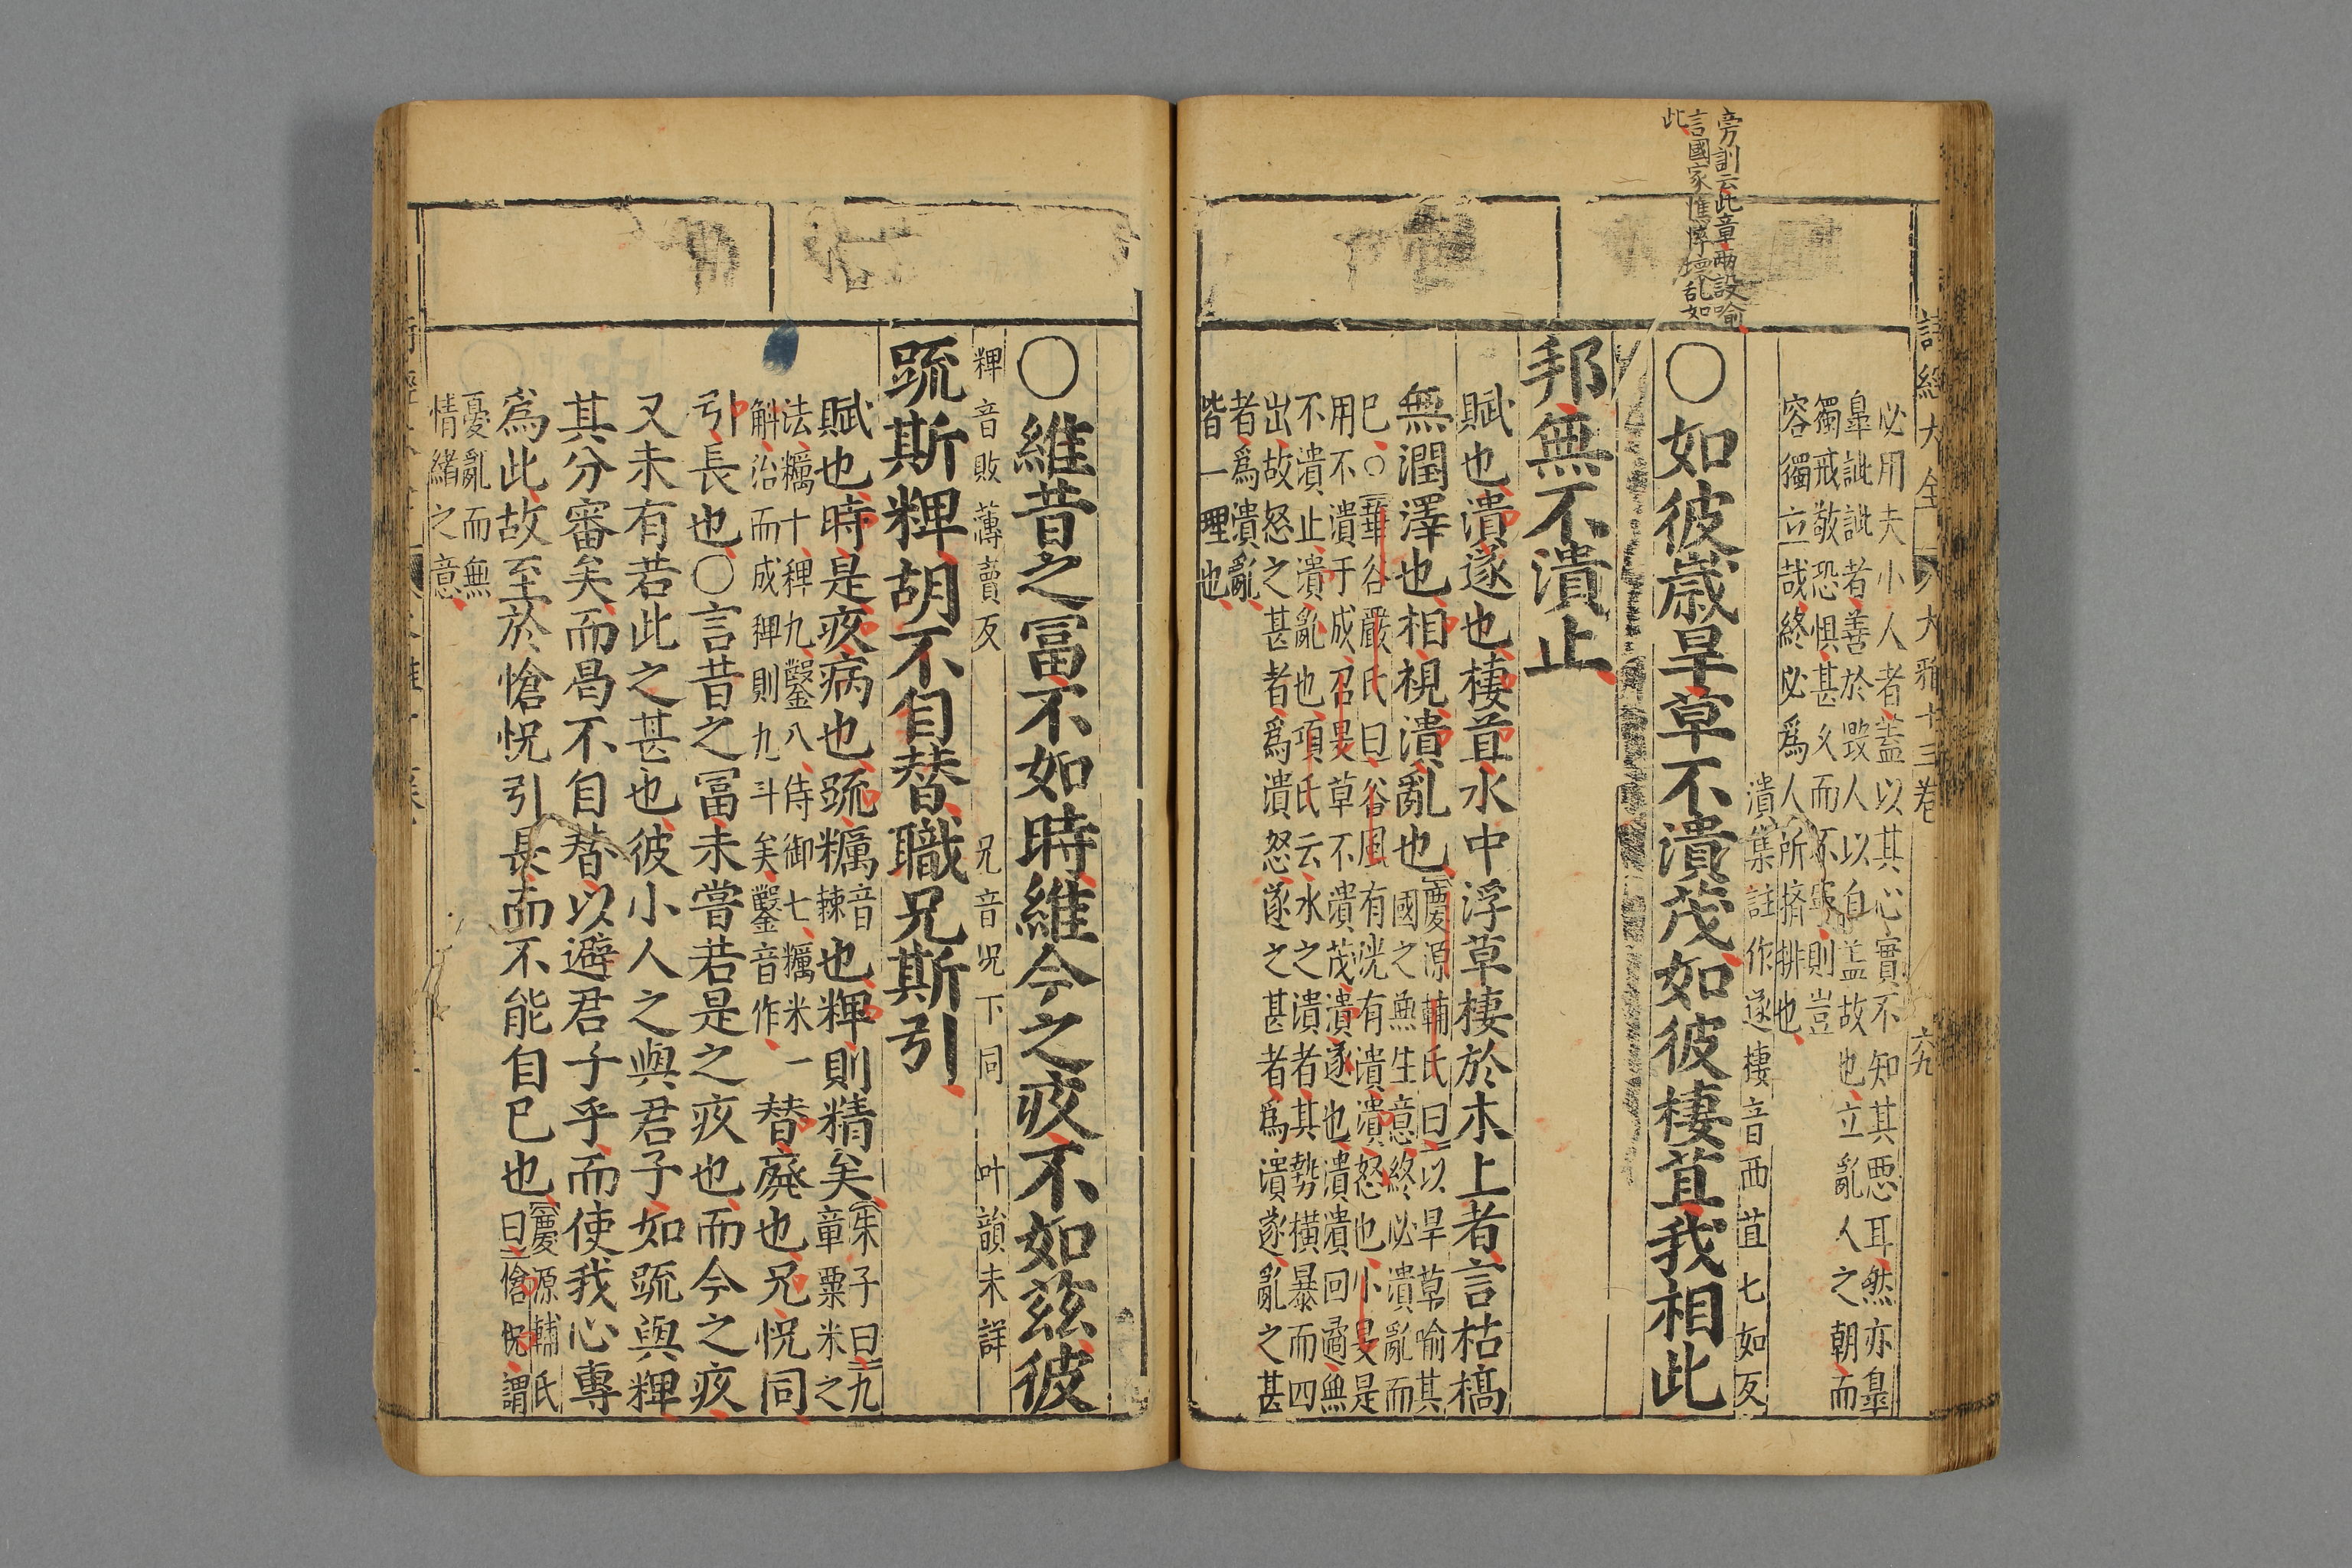 詩經大全 大雅十三卷 六九
旁訓云此章兩設喻
言國家憔悴壞乱如
此
必用夫小人者蓋以其心實不知其惡耳然亦臯
臯訿訿者善於毀人以自盖故也立亂人之朝而
獨戒敬恐惧甚久而不寧則豈
容獨立哉終必爲人所擠排也
潰集註作遂棲音西苴七如反
○如彼歲旱草不潰茂如彼棲苴我相此
邦無不潰止
賦也潰遂也棲苴水中浮草棲於木上者言枯槁
無潤澤也相視潰亂也慶源輔氏曰以旱草喻其
國之無生意終必潰亂而
已○華谷嚴氏曰谷風有洸有潰潰怒也小旻是
用不潰于成召旻草不潰茂潰遂也潰潰回遹無
不潰止潰亂也項氏云水之潰者其勢橫暴而四
出故怒之甚者爲潰怒遂之甚者爲潰遂亂之甚
者爲潰亂
皆一理也
○維昔之冨不如時維今之疚不如茲彼
粺音敗薄賣反 兄音况下同 叶韻未詳
䟽斯粺胡不自替職兄斯引
賦也時是疚病也䟽糲音辣也粺則精矣朱子曰九章粟米之
法糲十稗九鑿八侍御七糲米一
斛治而成稗則九斗矣鑿音作替廢也兄怳同
引長也○言昔之冨未嘗若是之疚也而今之疚
又未有若此之甚也彼小人之與君子如䟽與粺
其分審矣而曷不自替以避君子乎而使我心專
爲此故至於愴怳引長而不能自已也慶源輔氏
曰愴怳謂
憂亂而無
情緒之意